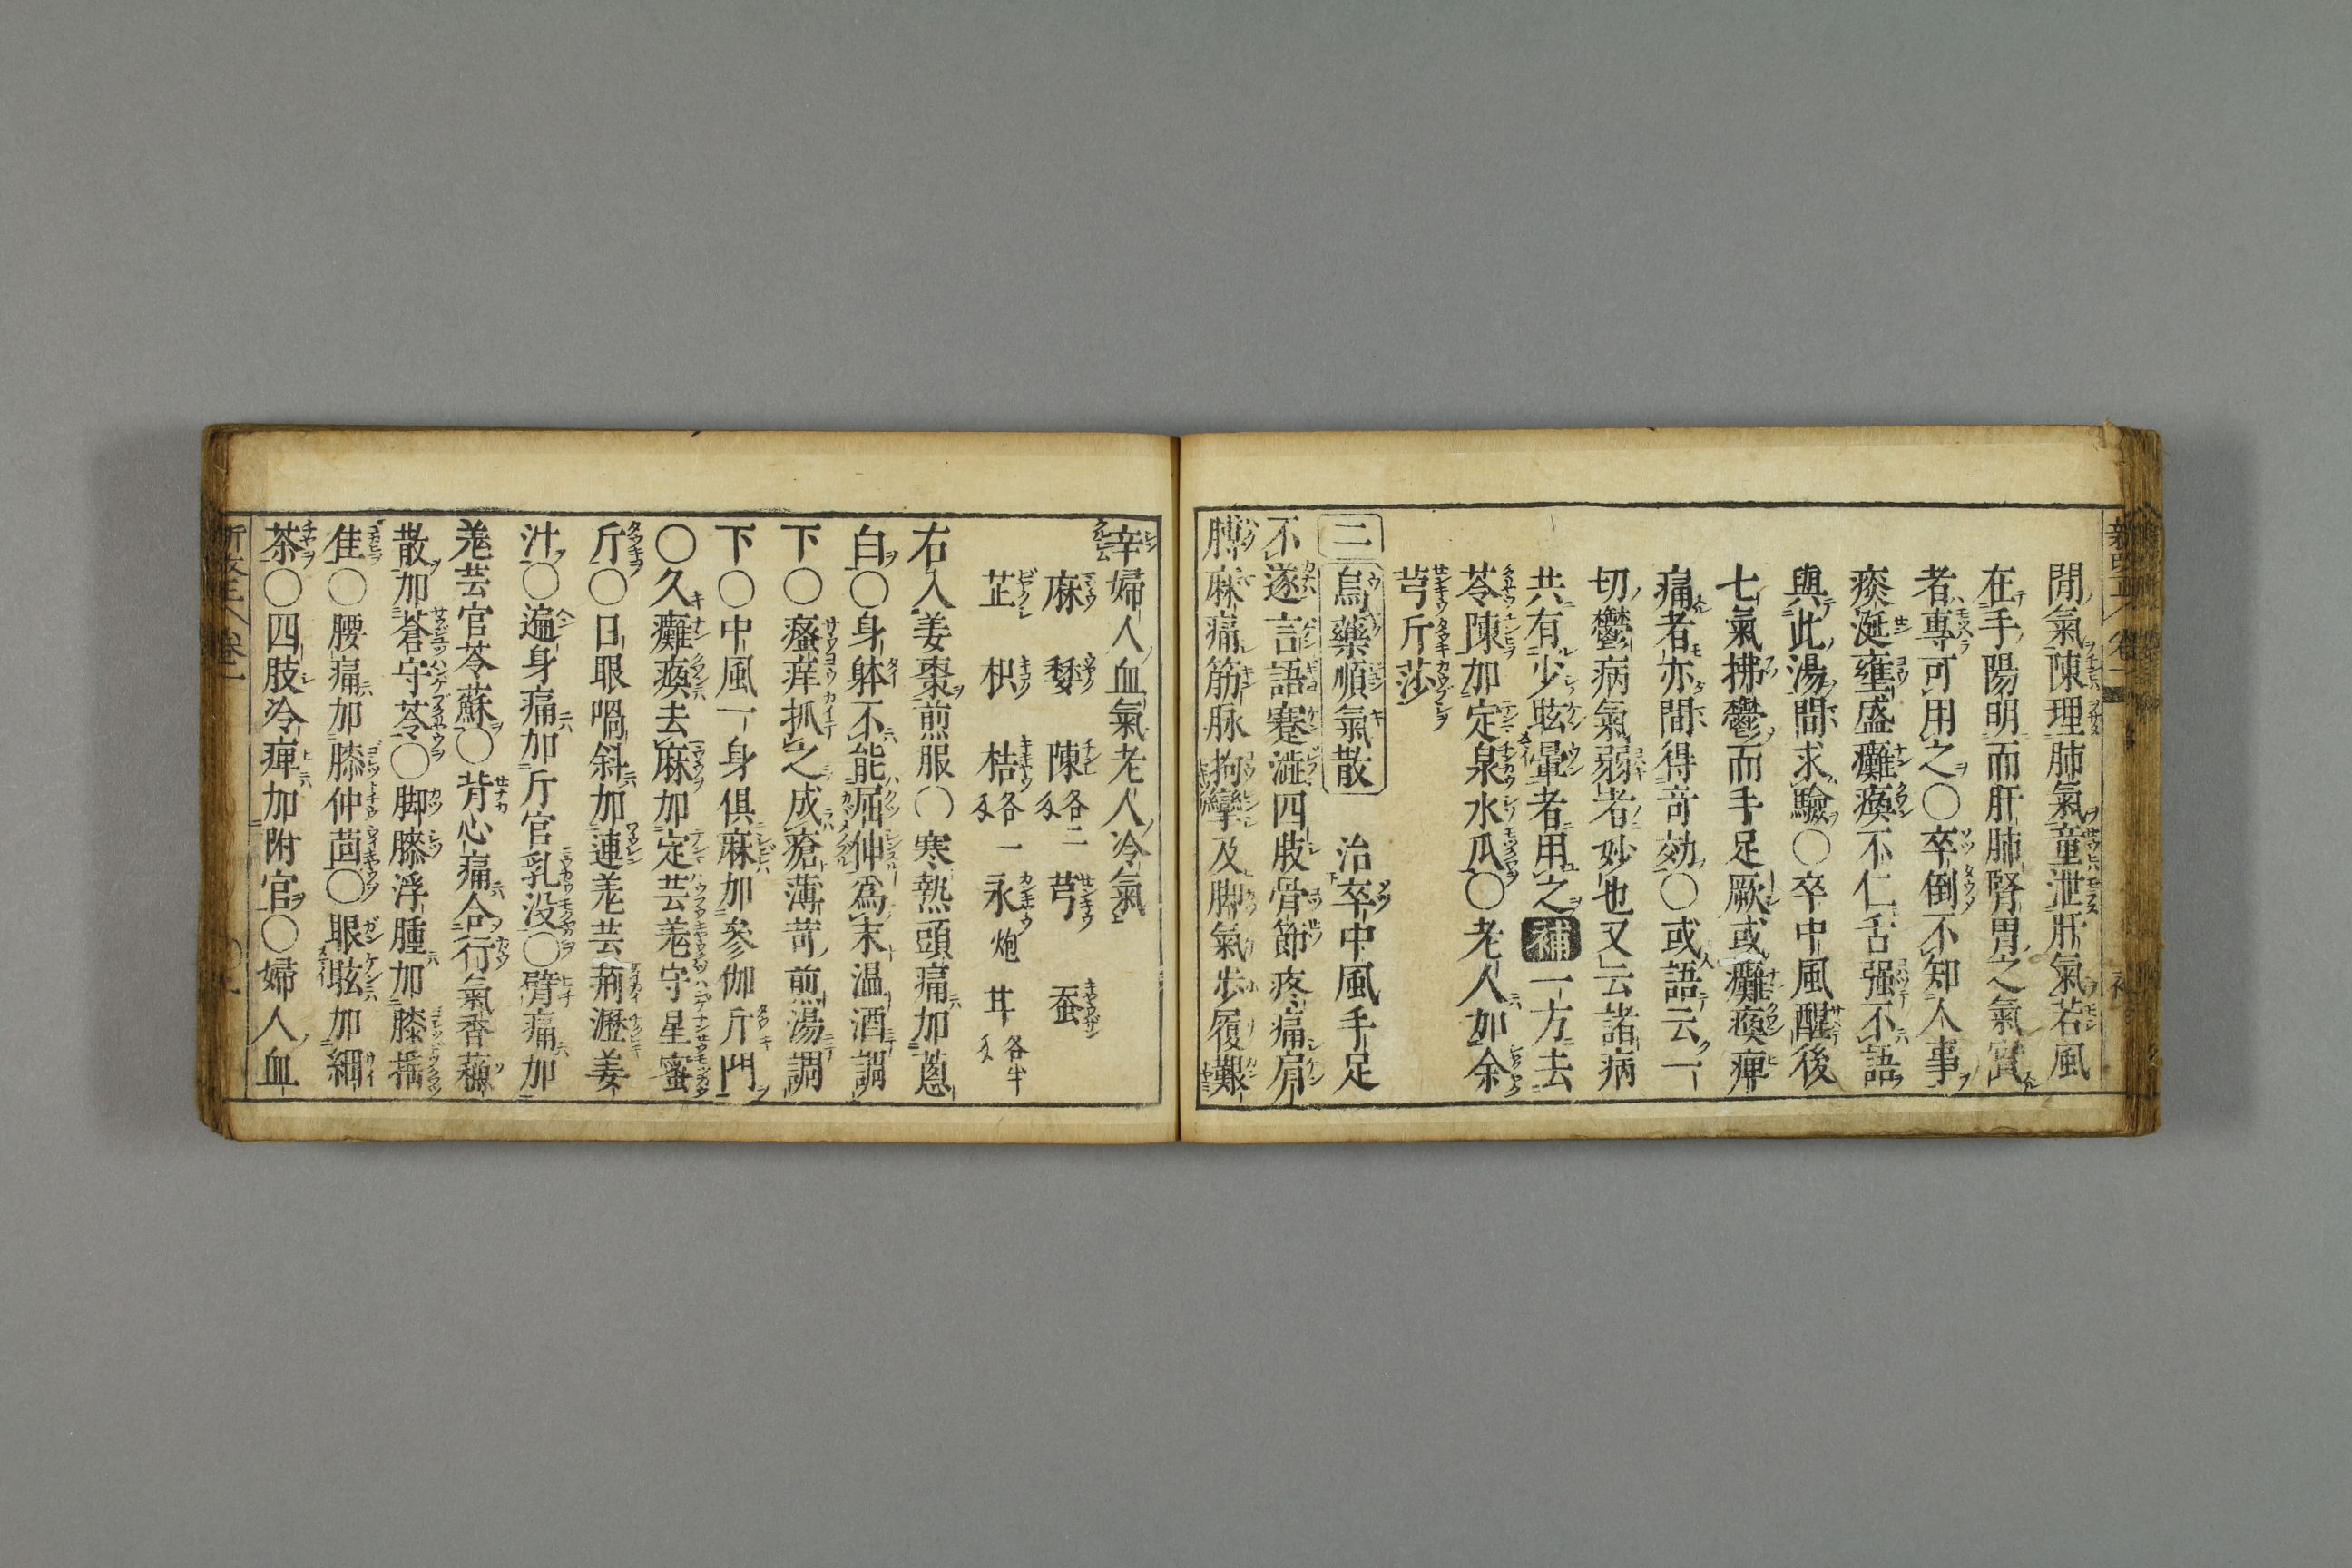 間氣陳理肺氣童泄肝氣若風
在手陽明而肝肺腎胃之氣實
者專可用之〇卒倒不知人事
痰涎壅盛癱瘓不仁舌强不語
與此湯間求驗〇卒中風醒後
七氣拂鬱而手足厥或癱瘓痺
痛者亦間得竒効〇或語云一
切鬱病氣弱者妙也又云諸病
共有少眩暈者用之補一方去
苓陳加定泉水瓜〇老人加余
芎斤莎
三烏藥順氣散 治卒中風手足
不遂言語蹇澁四肢骨節疼痛肩
膊麻痛筋脉拘攣及脚氣步履艱
辛婦人血氣老人冷氣
麻 陳各二 芎 蚕
芷 枳 桔各一 永炮 各半
右入姜棗煎服〇寒熱頭痛加蔥
白〇身躰不能屈伸爲末温酒調
下〇痒抓之成瘡薄苛煎湯調
下〇中風一身俱麻加參伽斤門
〇久癱瘓去麻加定芸羗守星蜜
斤〇日眼喎斜加連羗芸荊瀝姜
汁〇遍身痛加斤官乳没〇臂痛加
羗芸官苓蘇〇背心痛合行氣香蘓
散加蒼守苓〇脚膝浮腫加膝
隹〇腰痛加膝仲茴〇眼眩加細
茶〇四肢冷痺加附官〇婦人血